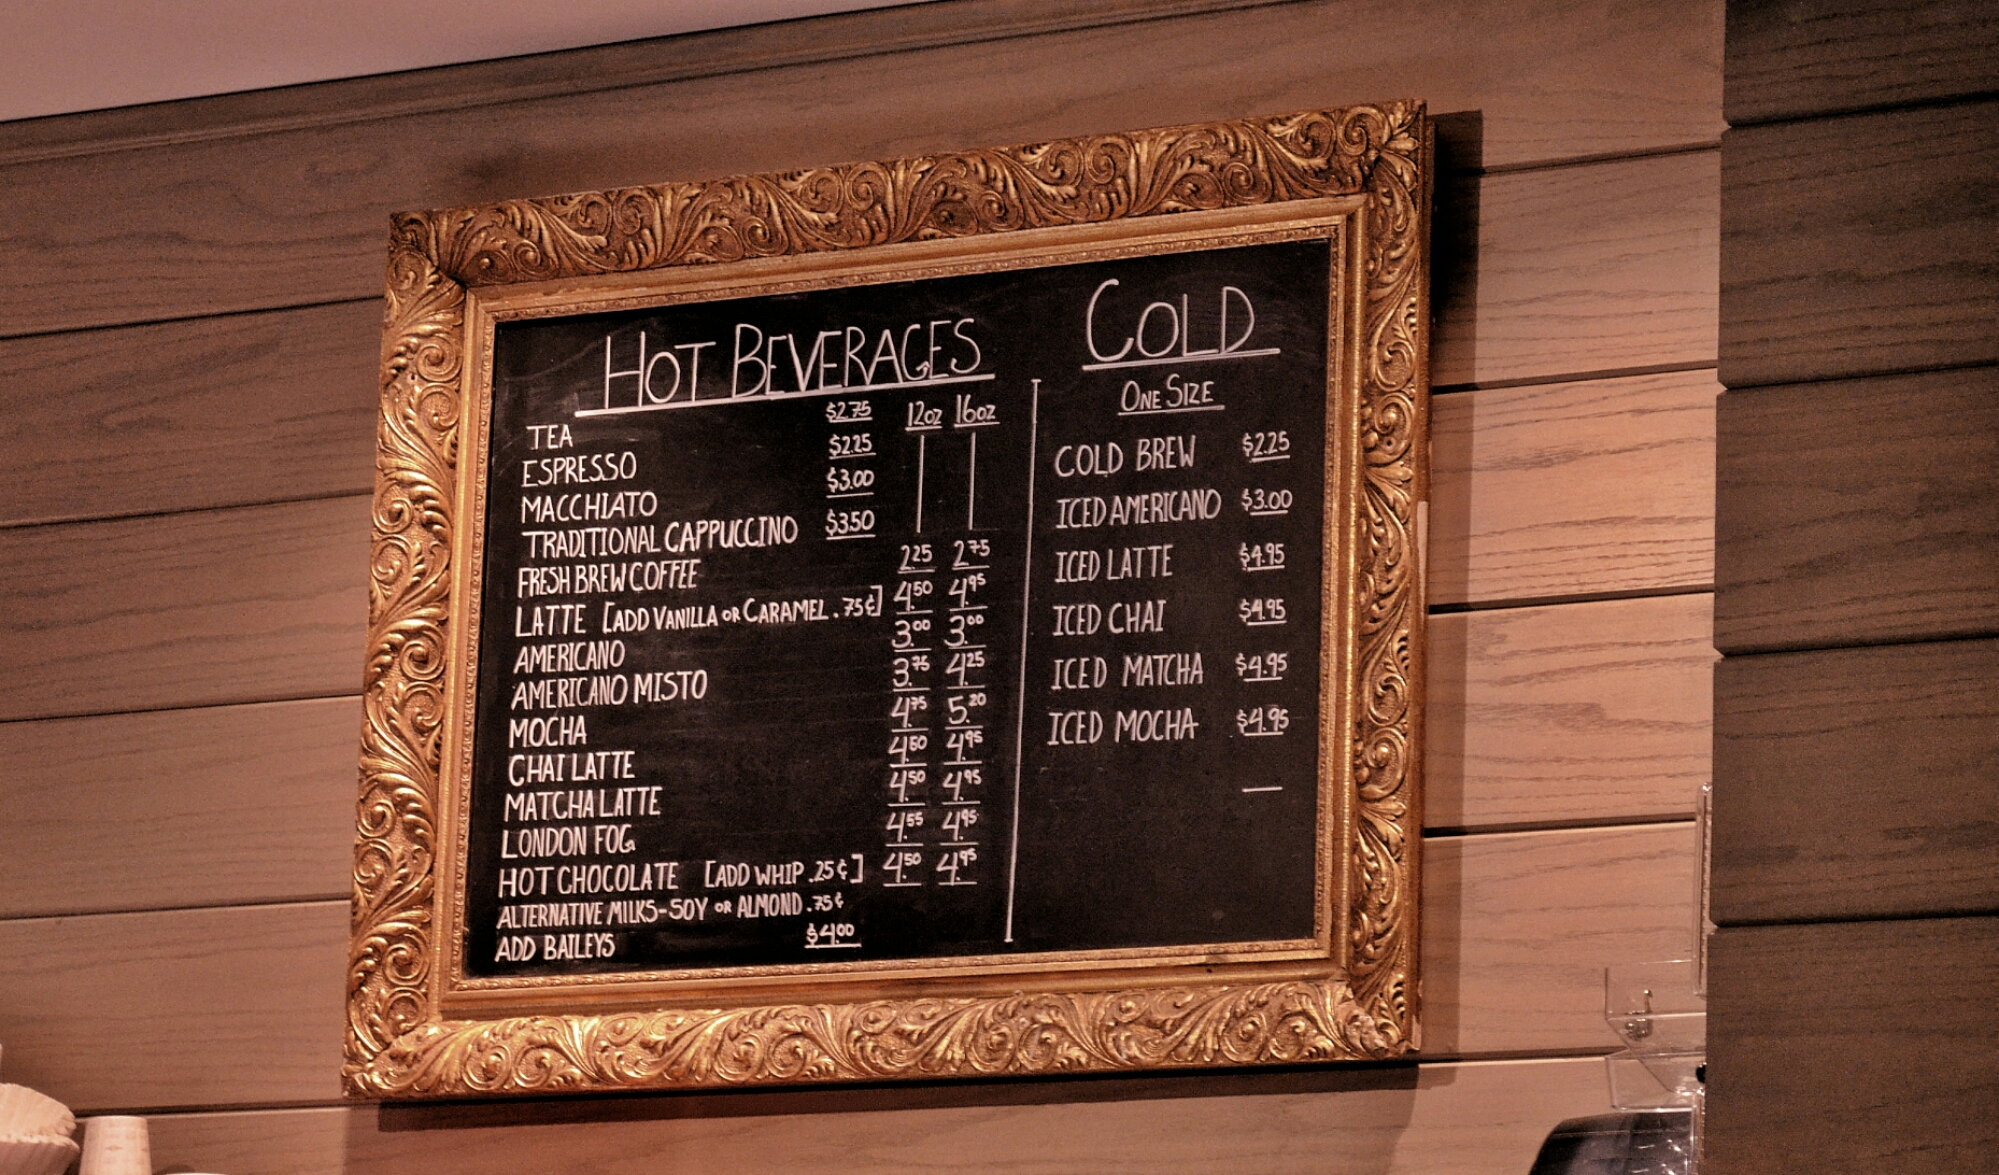 HOT BEVERAGES
12oz 16oz
TEA $2.75
ESPRESSO $2.25
MACCHIATO $3.00
TRADITIONAL CAPPUCCINO $3.50
FRESH BREW COFFEE 2.25 2.75
LATTE [ADD VANILLA OR CARAMEL .75¢] 4.50 4.95
AMERICANO 3.00 3.00
AMERICANO MISTO 3.75 4.25
MOCHA 4.75 5.20
CHAI LATTE 4.50 4.95
MATCHA LATTE 4.50 4.95
LONDON FOG 4.55 4.95
HOT CHOCOLATE [ADD WHIP .25¢] 4.50 4.95
ALTERNATIVE MILKS-SOY OR ALMOND .75¢
ADD BAILEYS $4.00
COLD
ONE SIZE
COLD BREW $2.25
ICED AMERICANO $3.00
ICED LATTE $4.95
ICED CHAI $4.95
ICED MATCHA $4.95
ICED MOCHA $4.95